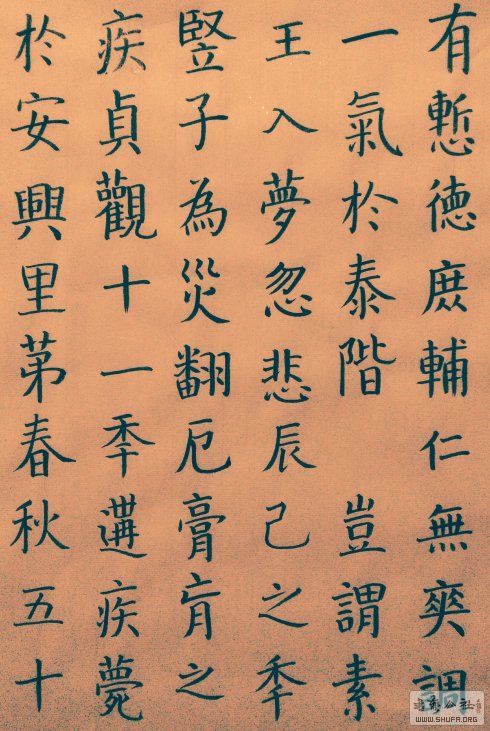 有慙徳庶輔仁無爽調
一氣於泰階 豈謂素
王入夢忽悲辰己之秊
竪子為災翻厄膏肓之
疾貞觀十一秊遘疾薨
於安興里苐春秋五十
WWW.SHUFA.ORG